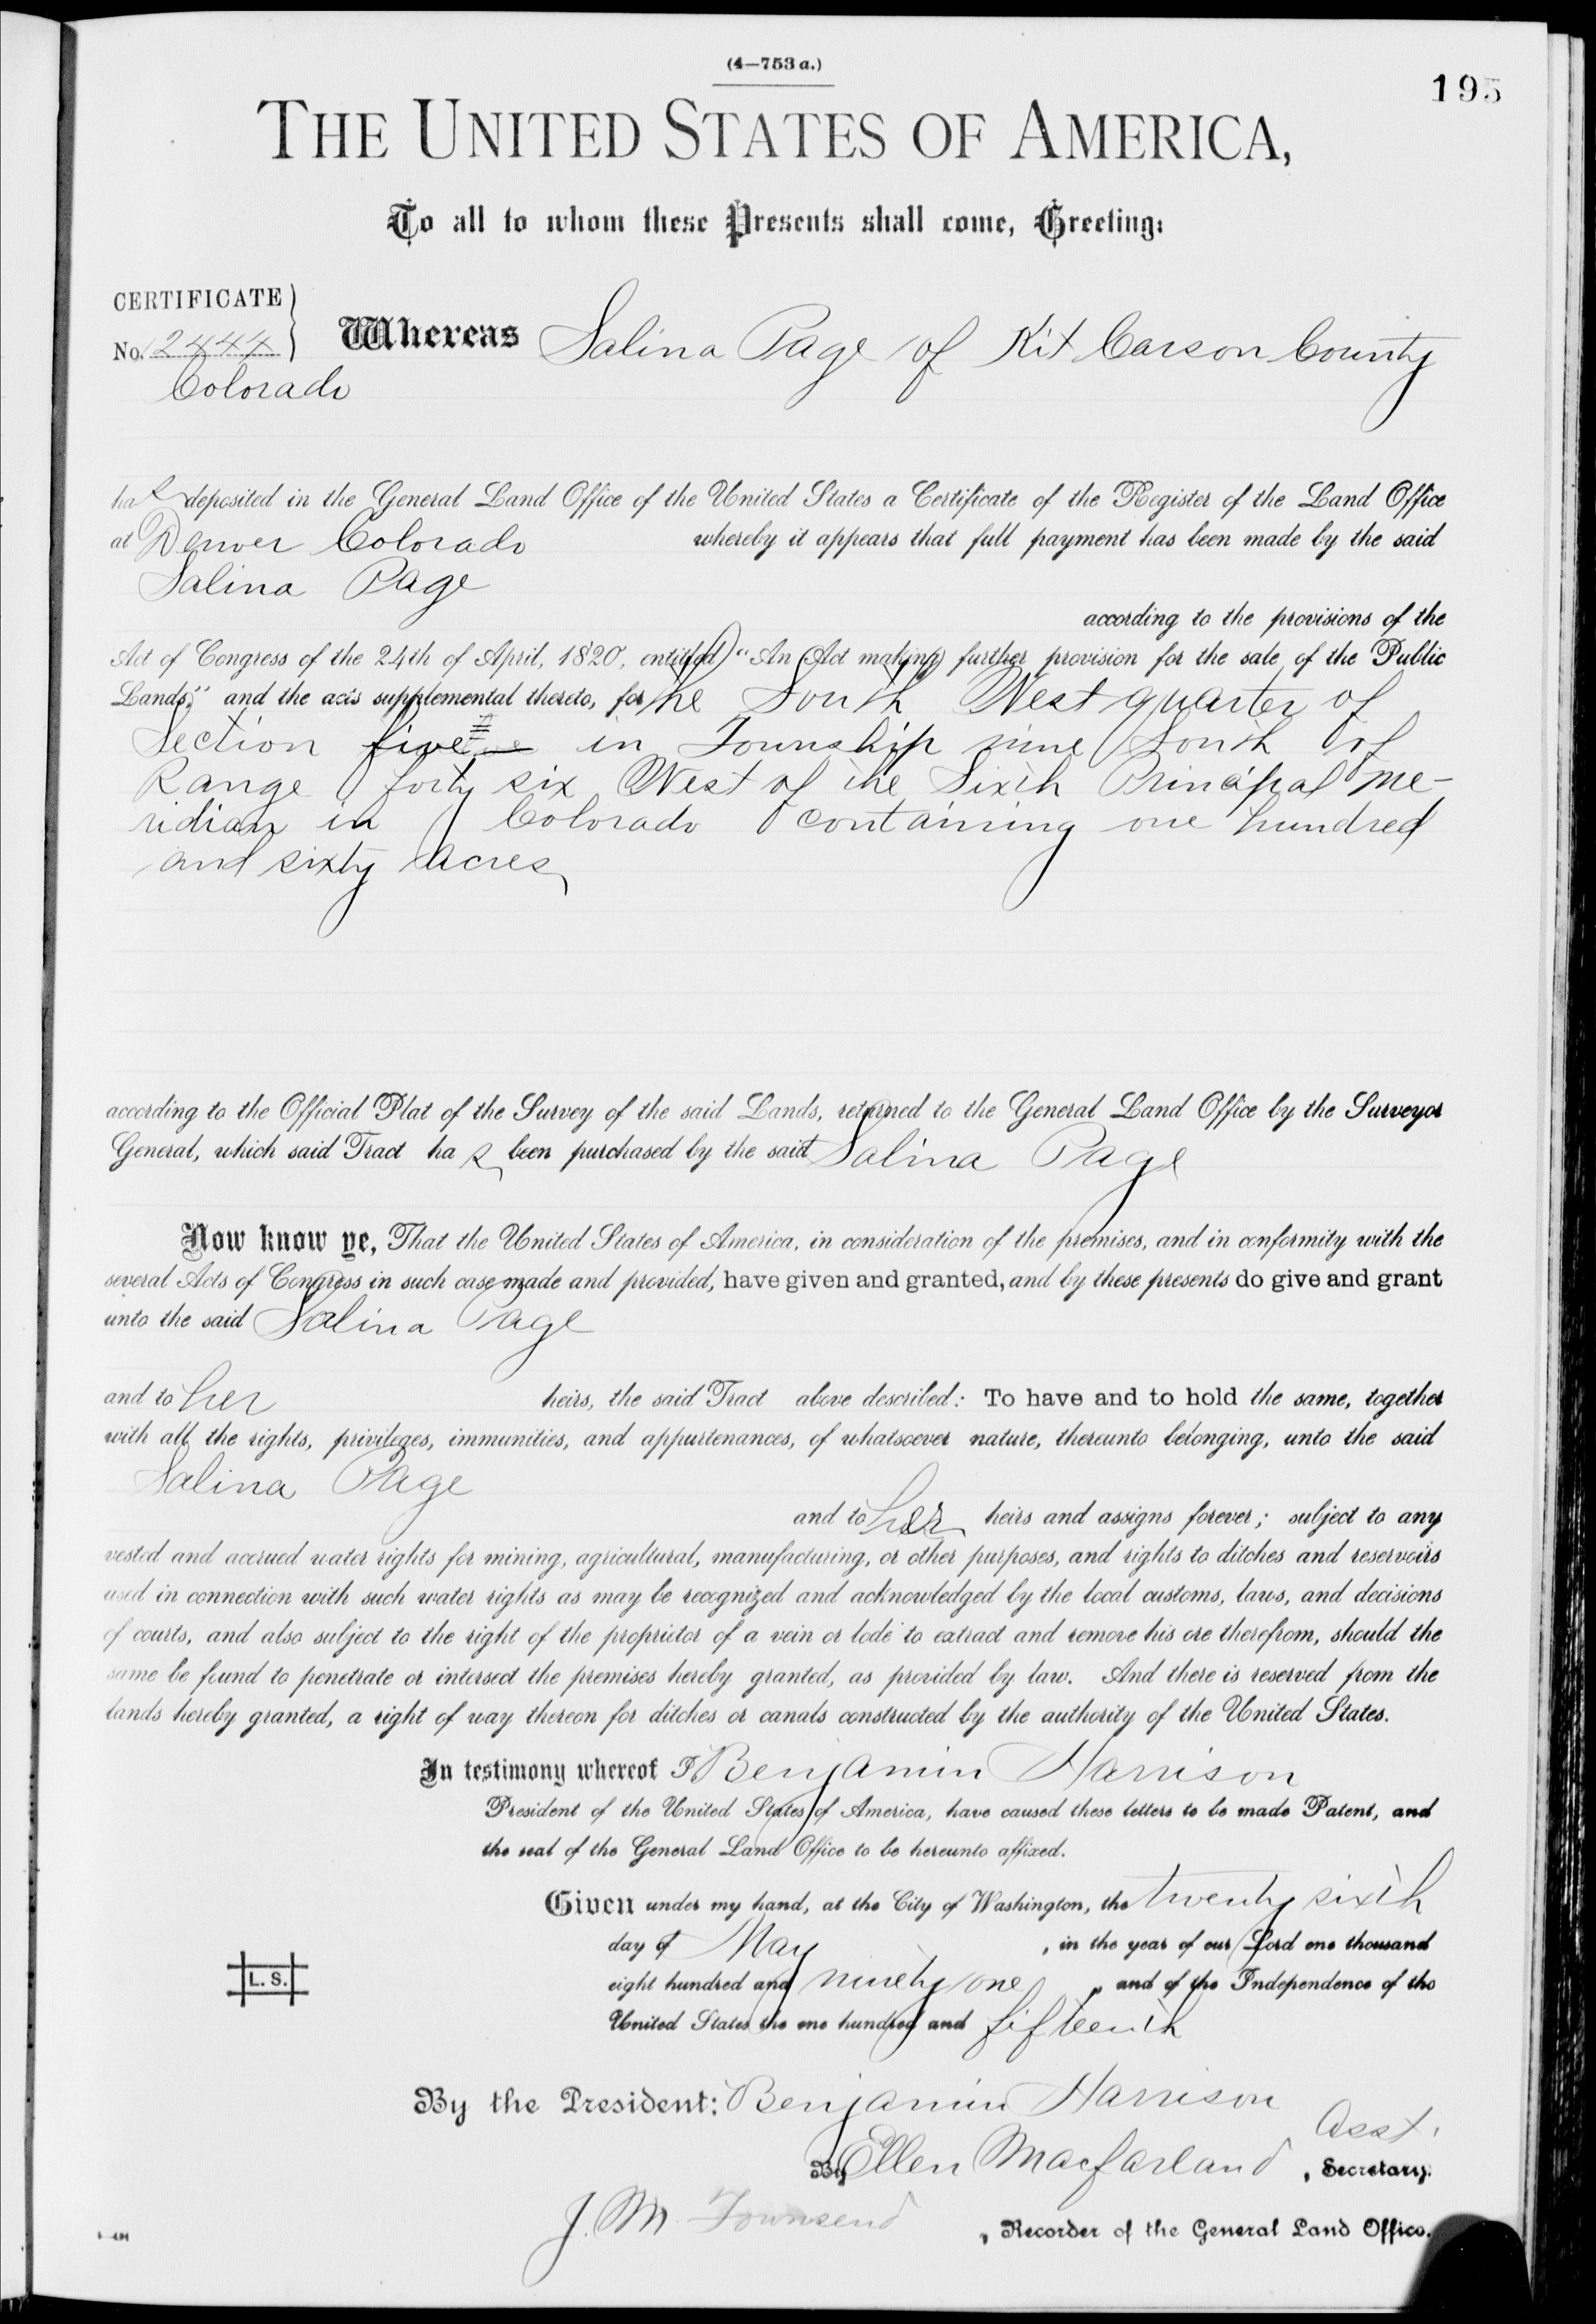 (4—753 a.)
195
THE UNITED STATES OF AMERICA,
To all to whom these Presents shall come, Greeting:
CERTIFICATE
No. 12444
Whereas Salina Page of Kit Carson County
Colorado
has deposited in the General Land Office of the United States a Certificate of the Register of the Land Office
at Denver Colorado whereby it appears that full payment has been made by the said
Salina Page
according to the provisions of the
Act of Congress of the 24th of April, 1820, entitled "An Act making further provision for the sale of the Public
Lands," and the acts supplemental thereto, for the South West quarter of
Section five in Township nine South of
Range forty six West of the Sixth Principal Me-
ridian in Colorado containing one hundred
and sixty acres
according to the Official Plat of the Survey of the said Lands, returned to the General Land Office by the Surveyor
General, which said Tract has been purchased by the said Salina Page
Now know ye, That the United States of America, in consideration of the premises, and in conformity with the
several Acts of Congress in such case made and provided, have given and granted, and by these presents do give and grant
unto the said Salina Page
and to her heirs, the said Tract above described: To have and to hold the same, together
with all the rights, privileges, immunities, and appurtenances, of whatsoever nature, thereunto belonging, unto the said
Salina Page
and to her heirs and assigns forever; subject to any
vested and accrued water rights for mining, agricultural, manufacturing, or other purposes, and rights to ditches and reservoirs
used in connection with such water rights as may be recognized and acknowledged by the local customs, laws, and decisions
of courts, and also subject to the right of the proprietor of a vein or lode to extract and remove his ore therefrom, should the
same be found to penetrate or intersect the premises hereby granted, as provided by law. And there is reserved from the
lands hereby granted, a right of way thereon for ditches or canals constructed by the authority of the United States.
In testimony whereof I Benjamin Harrison
President of the United States of America, have caused these letters to be made Patent, and
the seal of the General Land Office to be hereunto affixed.
Given under my hand, at the City of Washington, the twenty sixth
day of May, in the year of our Lord one thousand
eight hundred and ninety one, and of the Independence of the
United States the one hundred and fifteenth
L. S.
By the President: Benjamin Harrison
By Ellen Macfarland Asst., Secretary.
J. M. Townsend, Recorder of the General Land Office.